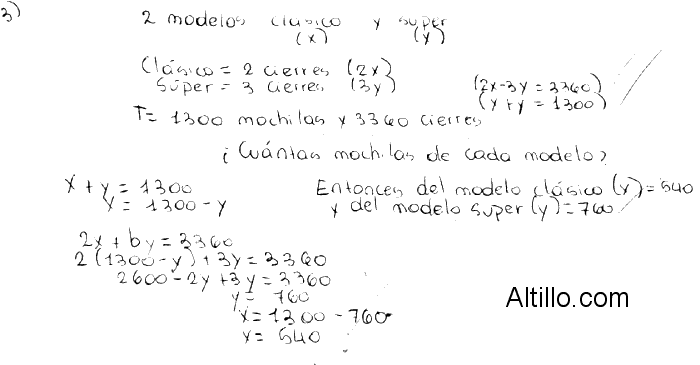 3)
2 modelos clásico y super
(x) (y)
Clásico = 2 cierres (2x)
Súper = 3 cierres (3y)
(2x-3y = 3360)
(x+y = 1300)
T= 1300 mochilas y 3360 cierres
¿Cuántas mochilas de cada modelo?
x + y = 1300
x = 1300 - y
Entonces del modelo clásico (x) = 540
y del modelo super (y) = 760
2x + 6y = 3360
2(1300 - y) + 3y = 3360
2600 - 2y + 3y = 3360
y = 760
x = 1300 - 760
x = 540
Altillo.com